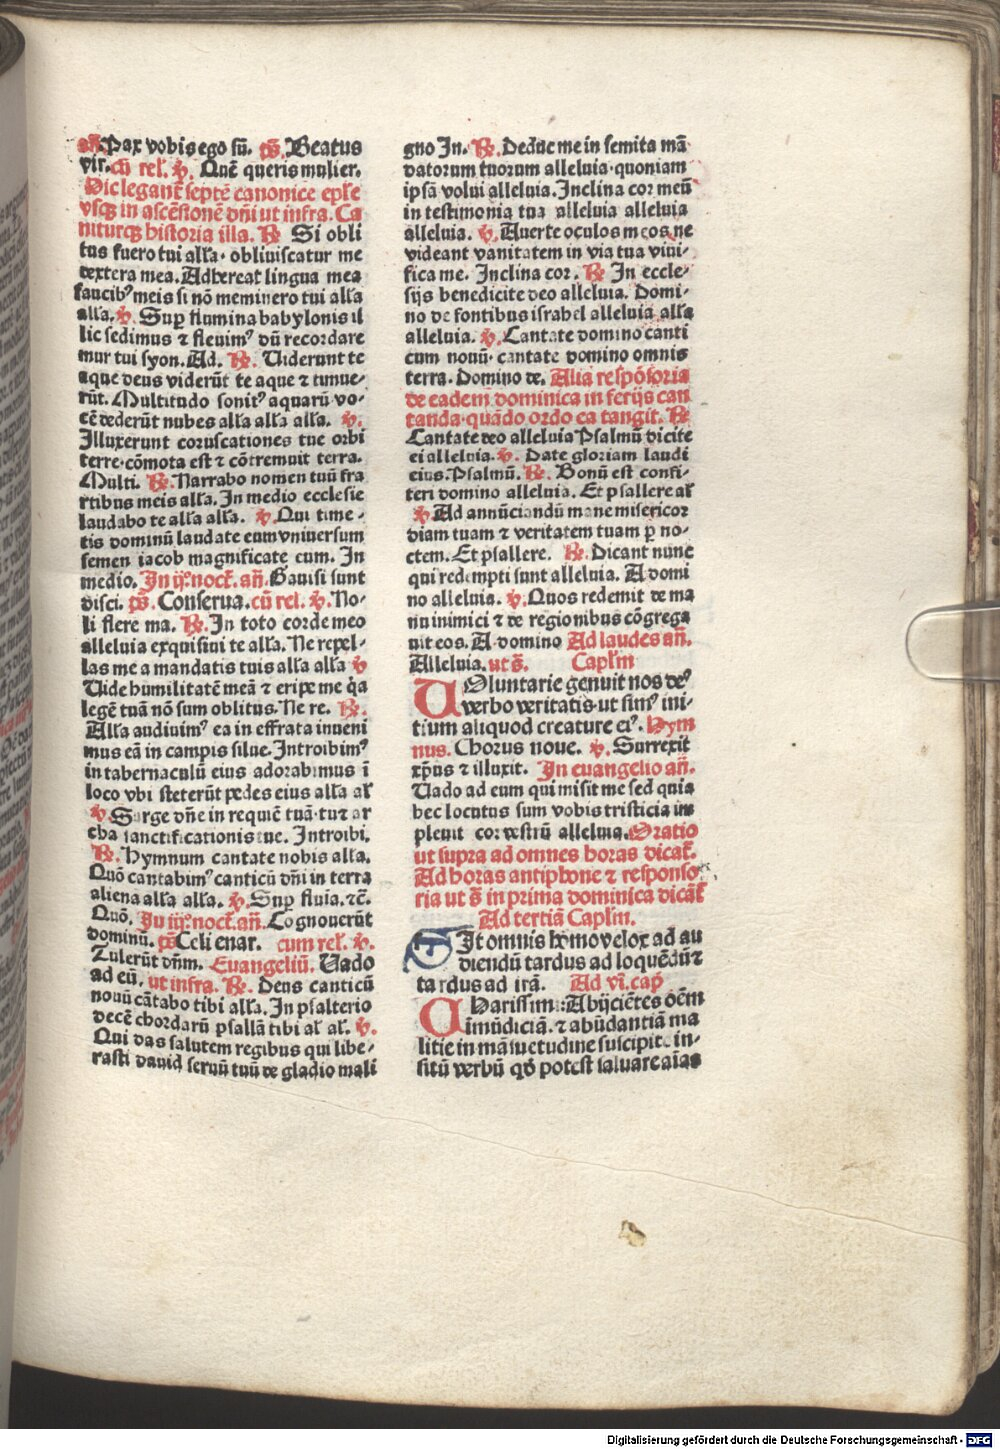 añ. Pax vobis ego sū. ps̄. Beatus
vir. cū rel̄. ꝟ. Quē queris mulier.
Hic legant̄ septē canonice epl̄e
vsqꝫ in ascēsionē dn̄i ut infra. Ca
niturqꝫ historia illa. ℞. Si obli
tus fuero tui all̄a. obliuiscatur me
dextera mea. Adhereat lingua mea
faucibꝰ meis si nō meminero tui all̄a
all̄a. ꝟ. Suꝑ flumina babylonis il
lic sedimus ⁊ fleuimꝰ dū recordare
mur tui syon. Ad. ℞. Uiderunt te
aque deus viderūt te aque ⁊ timue-
rūt. Multitudo sonitꝰ aquarū vo-
cē dederūt nubes all̄a all̄a all̄a. ꝟ.
Illuxerunt coruscationes tue orbi
terre. cōmota est ⁊ cōtremuit terra.
Multi. ℞. Narrabo nomen tuū fra
rtibus meis all̄a. In medio ecclesie
laudabo te all̄a all̄a. ꝟ. Qui time-
tis dominū laudate eum vniuersum
semen iacob magnificate eum. In
medio. In ij.º noct̄. añ. Gauisi sunt
disci. ps̄. Conserua. cū rel. ꝟ. No-
li flere ma. ℞. In toto corde meo
alleluia exquisiui te all̄a. Ne repel-
las me a mandatis tuis all̄a all̄a ꝟ
Uide humilitatē meā ⁊ eripe me q̇a
legē tuā nō sum oblitus. Ne re. ℞.
All̄a audiuimꝰ ea in effrata inueni
mus eā in campis silue. Introibimꝰ
in tabernaculū eius adorabimus ī
loco vbi steterūt pedes eius all̄a al̄
ꝟ. Surge dn̄e in requiē tuā. tu ⁊ ar
cha sanctificationis tue. Introibi.
℞. Hymnum cantate nobis all̄a.
Quō cantabimꝰ canticū dn̄i in terra
aliena all̄a all̄a. ꝟ. Suꝑ fluia. ⁊c̄.
Quō. In iij.º noct̄. añ. Cognouerūt
dominū. ps̄ Celi enar. cum rel̄. ꝟ.
Tulerūt dn̄m. Euangeliū. Uado
ad eū. ut infra. ℞. Deus canticū
nouū cātabo tibi all̄a. In psalterio
decē chordarū psallā tibi al̄ al̄. ꝟ.
Qui das salutem regibus qui libe-
rasti dauid seruū tuū de gladio mali
gno In. ℞. Deduc me in semita mā
datorum tuorum alleluia. quoniam
ipsā volui alleluia. Inclina cor meū
in testimonia tua alleluia alleluia
alleluia. ꝟ. Auerte oculos meos ne
videant vanitatem in via tua viui-
fica me. Inclina cor. ℞. In eccle-
sijs benedicite deo alleluia. Domi-
no de fontibus israhel alleluia all̄a
alleluia. ꝟ. Cantate domino canti
cum nouū. cantate domino omnis
terra. Domino de. Alia respōsoria
de eadem dominica in ferijs can
tanda. quādo ordo ea tangit. ℞
Cantate deo alleluia Psalmū dicite
ei alleluia. ꝟ. Date gloriam laudi
eius. Psalmū. ℞. Bonū est confi-
teri domino alleluia. Et psallere al̄
ꝟ Ad annūciandū mane misericor
diam tuam ⁊ veritatem tuam ꝑ no-
ctem. Et psallere. ℞. Dicant nunc
qui redempti sunt alleluia. A domi
no alleluia. ꝟ. Quos redemit de ma
nu inimici ⁊ de regionibus cōgrega
uit eos. A domino Ad laudes añ.
Alleluia. ut s̄. Capl̄m
Uoluntarie genuit nos deꝰ
verbo veritatis. ut simꝰ ini-
tium aliquod creature eiꝰ. Hym
nus. Chorus noue. ꝟ. Surrexit
xp̄us ⁊ illuxit. In euangelio añ.
Uado ad eum qui misit me sed quia
hec locutus sum vobis tristicia im
pleuit cor vestrū alleluia. Oratio
ut supra ad omnes horas dicat̄.
Ad horas antiphone ⁊ responso-
ria ut s̄ in prima dominica dicāt̄
Ad tertiā Capl̄m.
Sit omnis homo velox ad au
diendū tardus ad loquēdū ⁊
tardus ad irā. Ad vi. cap̄
Charissimi: Abijciētes oēm
īmūdiciā. ⁊ abūdantiā ma
litie in māsuetudine suscipite in-
sitū verbū qd̄ potest saluare aīas
Digitalisierung gefördert durch die Deutsche Forschungsgemeinschaft - DFG